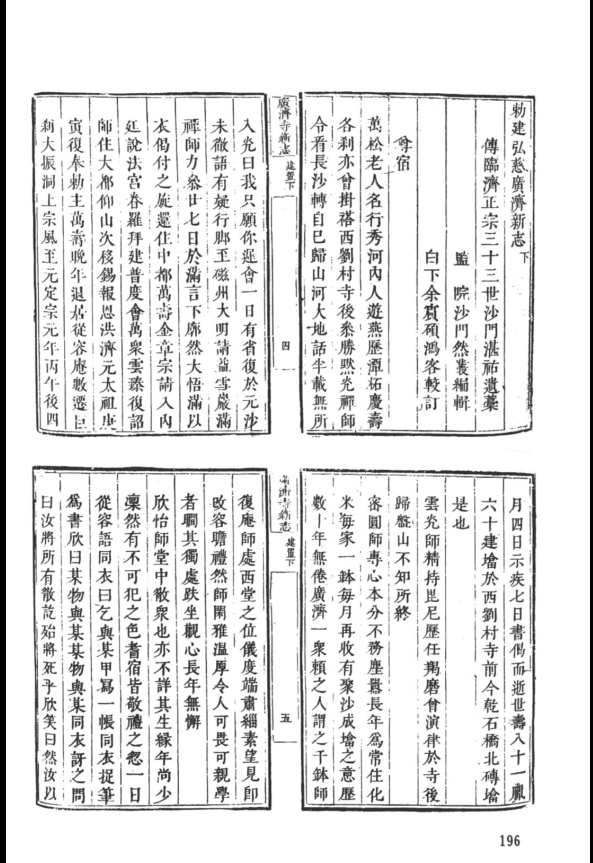 勅建弘慈廣濟新志下
傳臨濟正宗三十三世沙門湛祐遺藁
監院沙門然叢編輯
白下余賓碩鴻客較訂
尊宿
萬松老人名行秀河內人遊燕歷潭柘慶壽
各剎亦曾掛褡西劉村寺後叅勝默光禪師
令看長沙轉自己歸山河大地話半載無所
廣濟寺新志
建置下
四
入光曰我只願你遲會一日有省復於元沙
未徹語有疑行脚至磁州大明請益雪巖滿
禪師力叅廿七日於滿言下廓然大悟滿以
衣偈付之旋還住中都萬壽金章宗請入內
廷說法宮眷羅拜建普度會萬衆雲臻復詔
師住大都仰山次移錫報恩洪濟元太祖庚
寅復奉勅主萬壽晩年退居從容庵數遷巨
剎大振洞上宗風至元定宗元年丙午後四
月四日示疾七日書偈而逝世壽八十一臘
六十建塔於西劉村寺前今乾石橋北磚塔
是也
雲光師精持毘尼歷任羯磨曾演律於寺後
歸盤山不知所終
審圓師專心本分不務塵囂長年爲常住化
米每家一鉢每月再收有聚沙成塔之意歷
數十年無倦廣濟一衆賴之人謂之千鉢師
濟寺新志
建置下
五
復庵師處西堂之位儀度端肅緇素望見卽
改容瞻禮然師閑雅溫厚令人可畏可親學
者瞷其獨處趺坐觀心長年無懈
欣怡師堂中散衆也亦不詳其生緣年尚少
凜然有不可犯之色耆宿皆敬禮之忽一日
從容語同衣曰乞與某甲寫一帳同衣捉筆
爲書欣曰某物與某某物與某同衣訝之問
曰汝將所有散訖殆將死乎欣笑曰然汝以
196